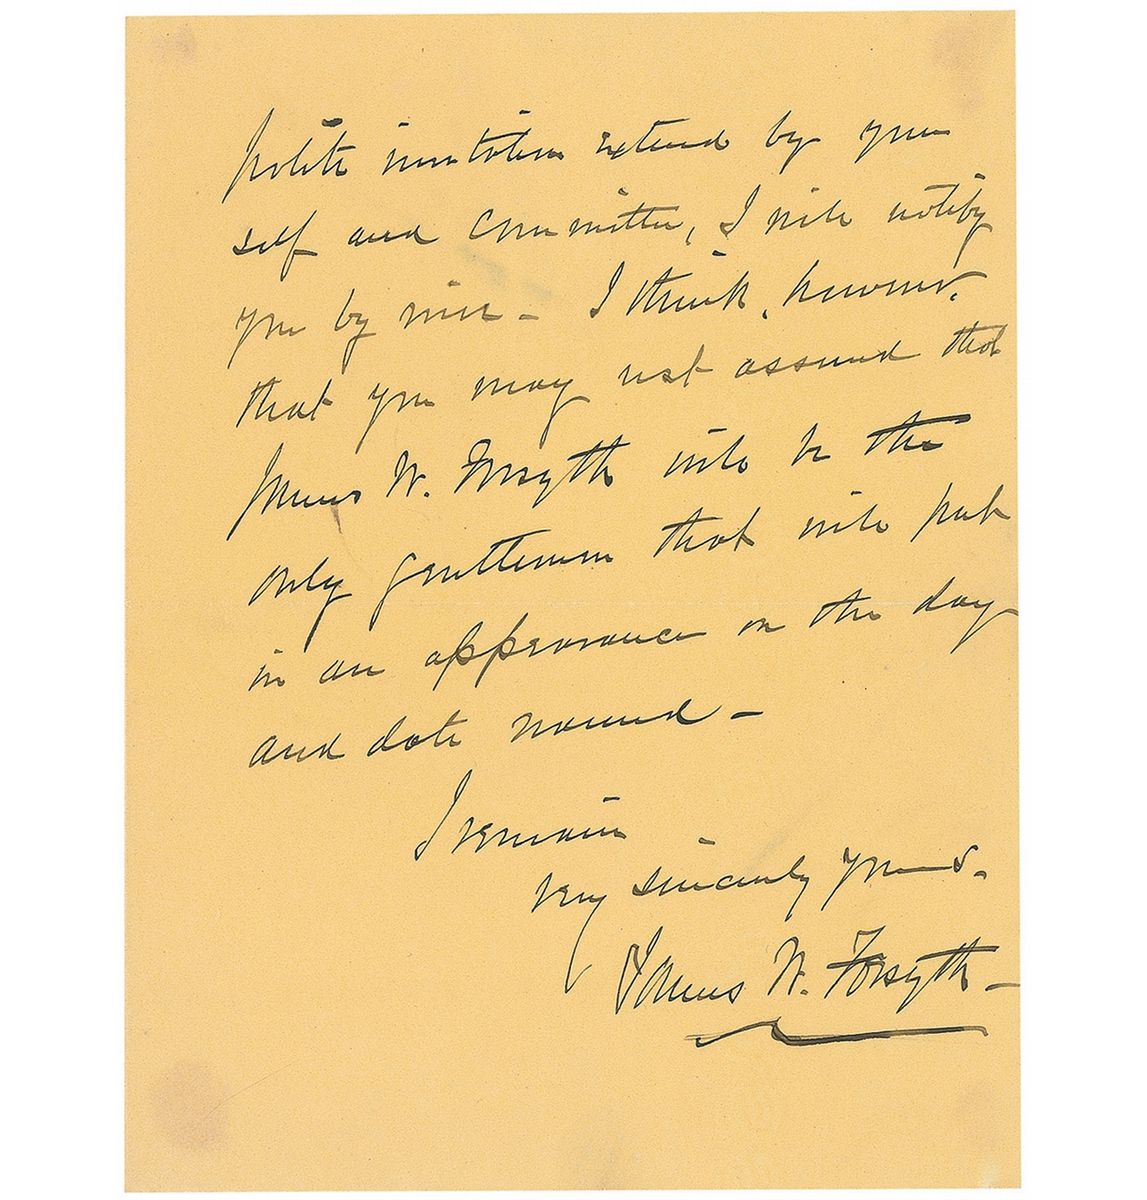 polite invitation extend by your
self and Committee, I will notify
you by wire - I think, however,
that you may rest assured that
James W. Forsyth will be the
only gentleman that will put
in an appearance on the day
and date named -
I remain
Very sincerely yours.
James W. Forsyth -